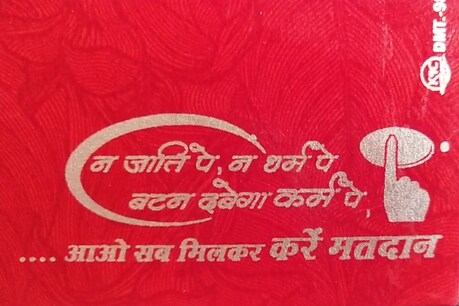 न जाति पे, न धर्म पे
बटन दबेगा कर्म पे,
.... आओ सब मिलकर करें मतदान